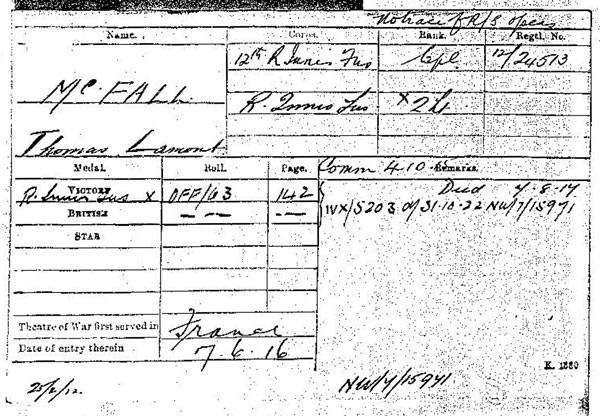 No trace of R/S opens
Name. Corps. Rank. Regtl. No.
12th R Innis Fus Cpl 12/24513
McFALL R. Innis Fus x 2/Lt
Thomas Lamont
Medal. Roll. Page. Comm 4 10 Remarks.
VICTORY Died 7-8-17
R. Innis Fus x OFF/63 142
BRITISH — — — IVX/5203 d/31-10-22 NW/7/15971
STAR
Theatre of War first served in France
Date of entry therein 7.6.16
K. 1380
NW/7/15971